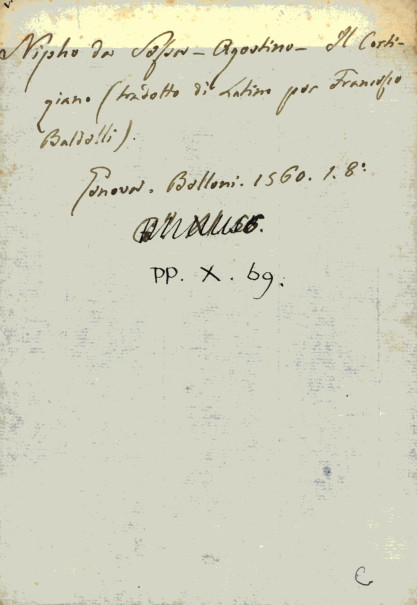 Nipho da Sessa - Agostino - Il Corti-
giano (tradotto di Latino per Francesco
Baldelli).
Genova. Belloni. 1560. 1. 8º
PP. X. 69.
C